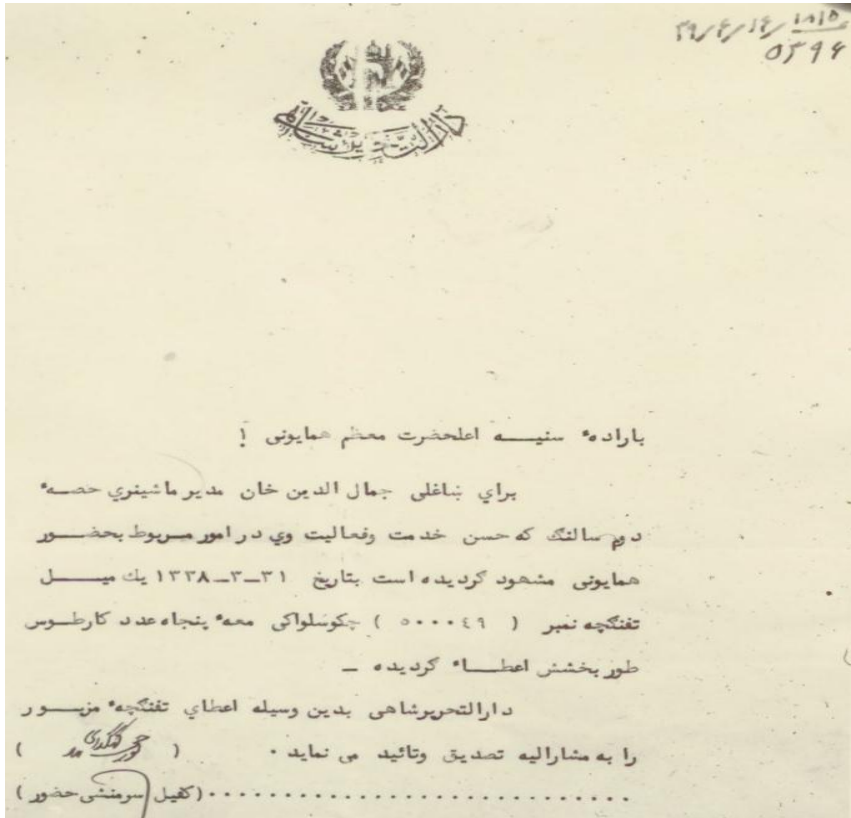 ۳۹/۴/۱۴/۱۸۱۵
۵۳۹۴
دارالتحریر شاهی
باراده ٔ سنیـــه اعلحضرت معظم همایونی !
براي ښاغلی جمال الدین خان مدیر ماشینري حصــه ٔ
دوم سالنګ که حسن خدمت وفعالیت وي در امور مربوط بحضـــور
همایونی مشهود گردیده است بتاریخ ۳۱ــ۳ــ۱۳۳۸ یك میـــل
تفنگچه نمبر ( ۵۰۰۰۴۹ ) چکوسلواکی معه ٔ پنجاه عدد کارطــوس
طور بخشش اعطـــاء گردیده ــ
دارالتحریرشاهی بدین وسیله اعطاي تفنگچه ٔ مزبـــور
را به مشارالیه تصدیق وتائید می نماید . ( )
..............................(کفیل سرمنشی حضور )